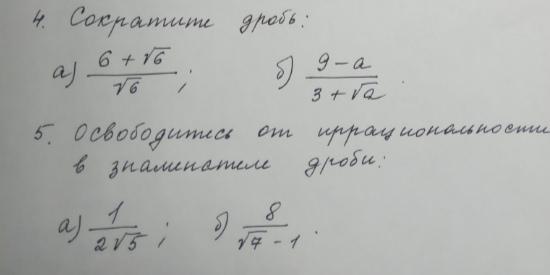 4. Сократите дробь:
а) (6 + √6)/√6; б) (9 - a)/(3 + √a).
5. Освободитесь от иррациональности
в знаменателе дроби:
а) 1/(2√5); б) 8/(√7 - 1).